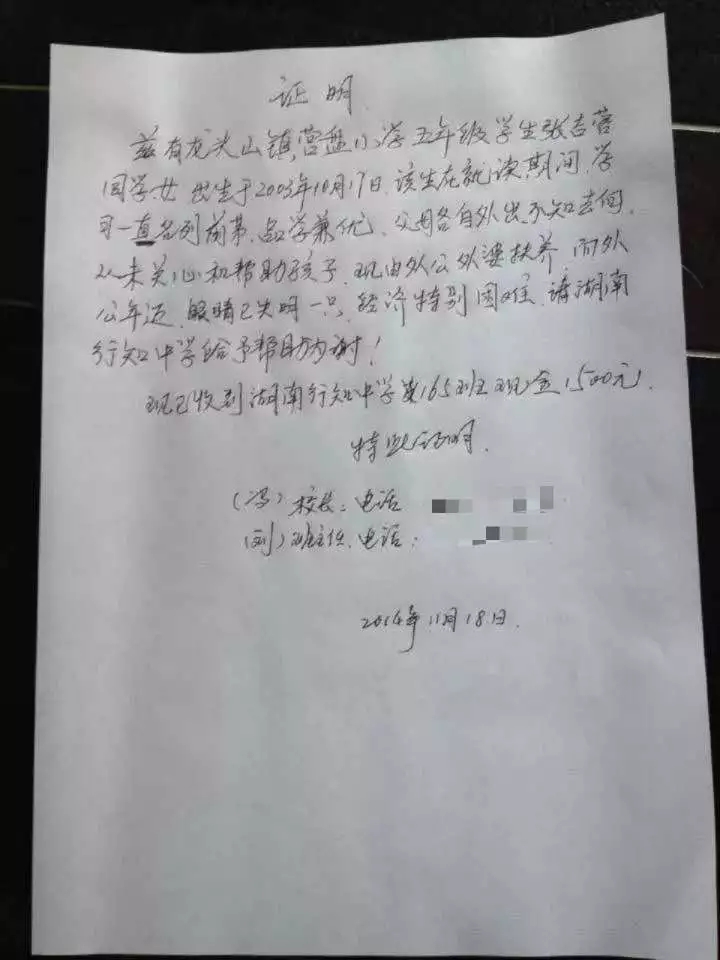 证明
兹有龙头山镇营盘小学五年级学生张吉蓉
同学女 出生于2003年10月17日.该生在就读期间,学
习一直名列前茅,品学兼优、父母各自外出不知去向.
从未关心和帮助孩子.现由外公外婆扶养,而外
公年迈.眼睛已失明一只,经济特别困难,请湖南
行知中学给予帮助为谢!
现已收到湖南行知中学第165班现金1500元.
特此证明.
(冯)校长:电话
(刘)班主任.电话:
2014年11月18日.